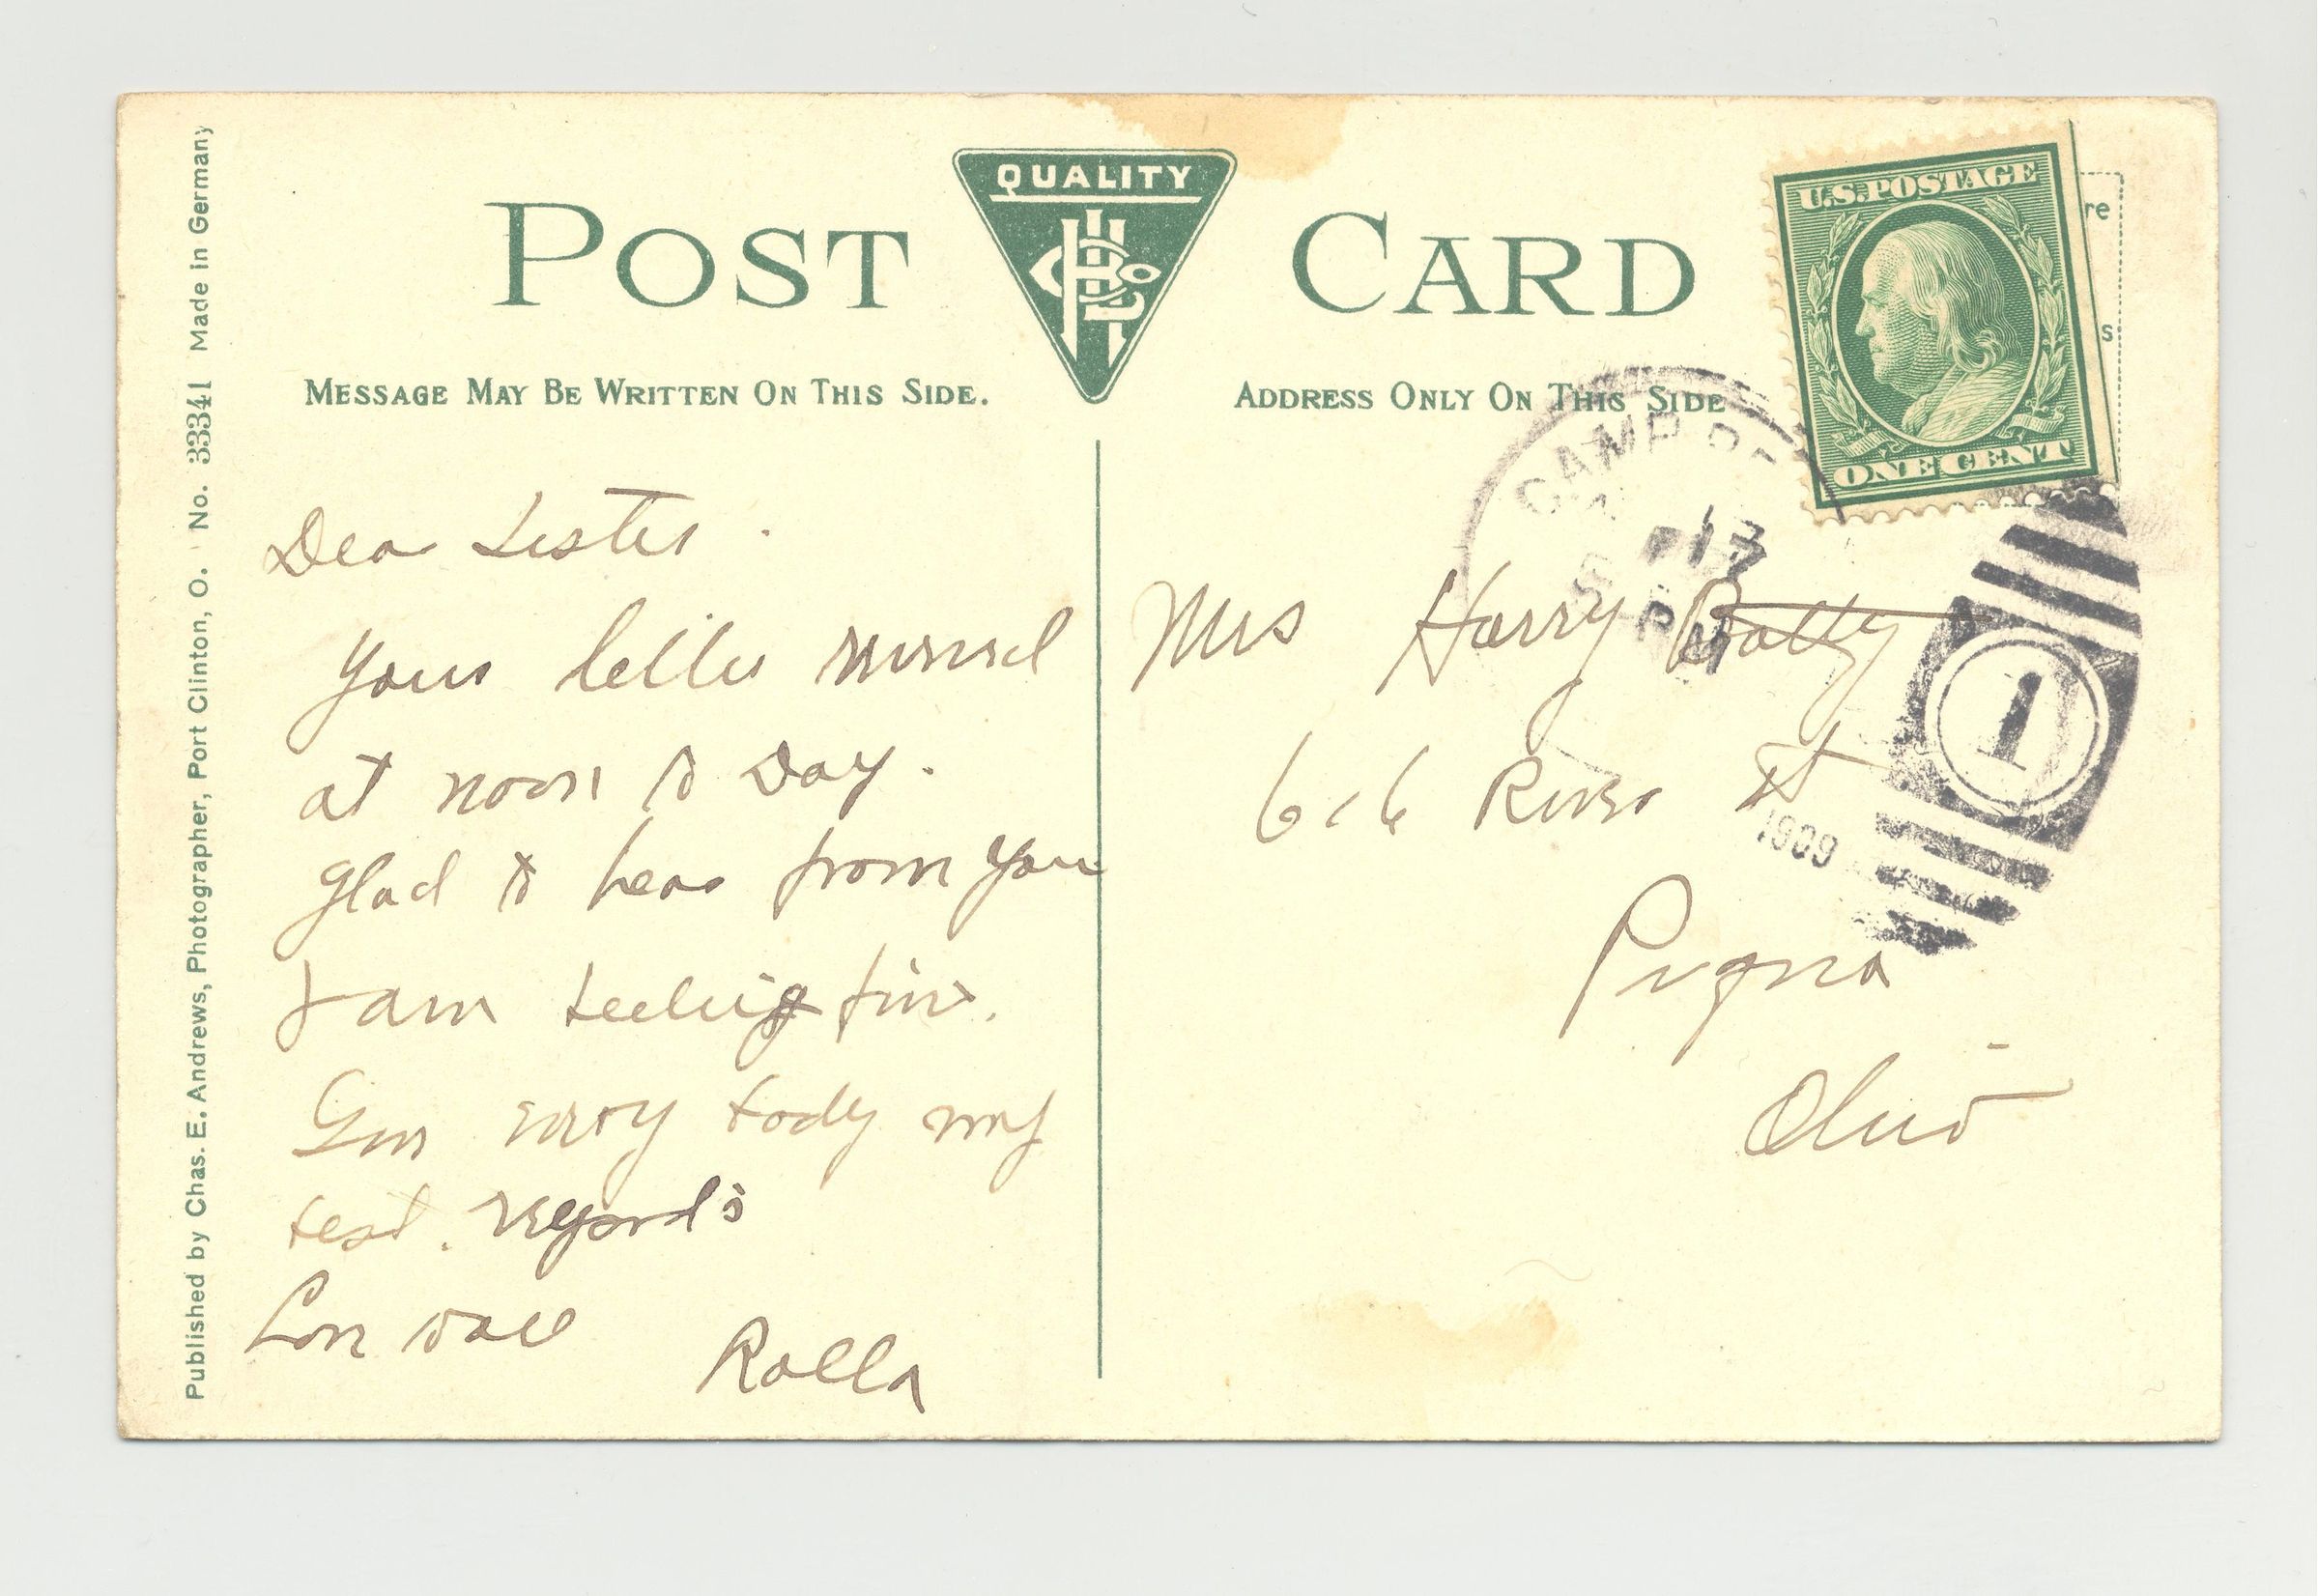 Published by Chas. E. Andrews, Photographer, Port Clinton, O. No. 33341 Made in Germany
POST CARD
QUALITY
MESSAGE MAY BE WRITTEN ON THIS SIDE.
ADDRESS ONLY ON THIS SIDE
U.S. POSTAGE
ONE CENT
re
s
CAMP
17
PM
1909
1
Dear Sister.
Your letter received
at noon to Day.
glad to hear from you
I am feeling fine.
Give every body my
best. regards
Rolla
Mrs Harry Batty
616 River St
Piqua
Ohio